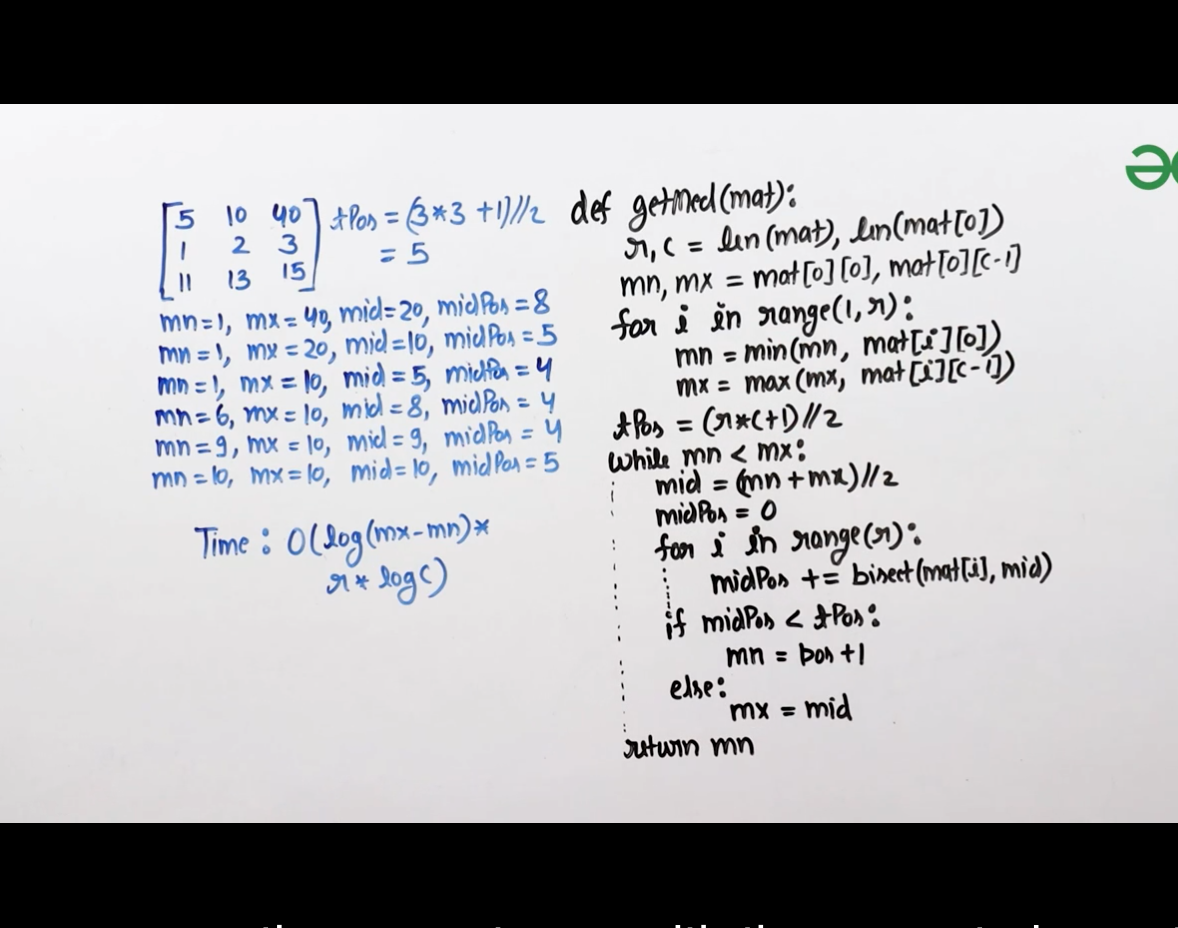 5 10 40
1 2 3
11 13 15
tPos = (3*3 +1)//2
= 5
mn=1, mx=40, mid=20, midPos=8
mn=1, mx=20, mid=10, midPos=5
mn=1, mx=10, mid=5, midPos=4
mn=6, mx=10, mid=8, midPos=4
mn=9, mx=10, mid=9, midPos=4
mn=10, mx=10, mid=10, midPos=5
Time: O(log(mx-mn)*
r* logc)
def getMed(mat):
r,c = len(mat), len(mat[0])
mn, mx = mat[0][0], mat[0][c-1]
for i in range(1,r):
mn = min(mn, mat[i][0])
mx = max(mx, mat[i][c-1])
tPos = (r*c+1)//2
while mn < mx:
mid = (mn+mx)//2
midPos = 0
for i in range(r):
midPos += bisect(mat[i], mid)
if midPos < tPos:
mn = pos+1
else:
mx = mid
return mn